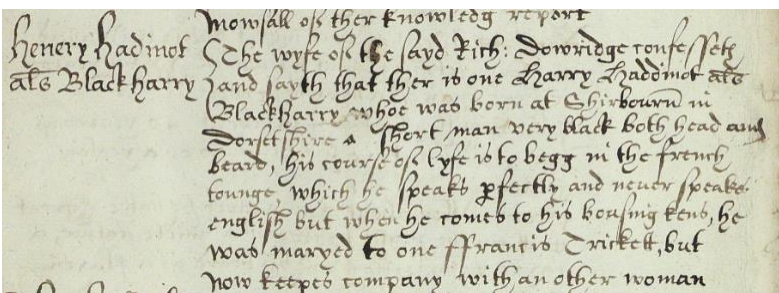 mowsall of ther knowledg report
Henery Hadinot
als Black Harry
The wyfe of the sayd Rich: Dowridge confesseth
and sayth that ther is one Harry Haddinot als
Blackharry whoe was born at Shirbourn in
Dorsetshire a short man very black both head and
beard, his course of lyfe is to begg in the french
tounge, which he speaks perfectly and never speaks
english but when he comes to his bousing kens, he
was maryed to one ffrancis Trickett, but
now keepes company with an other woman